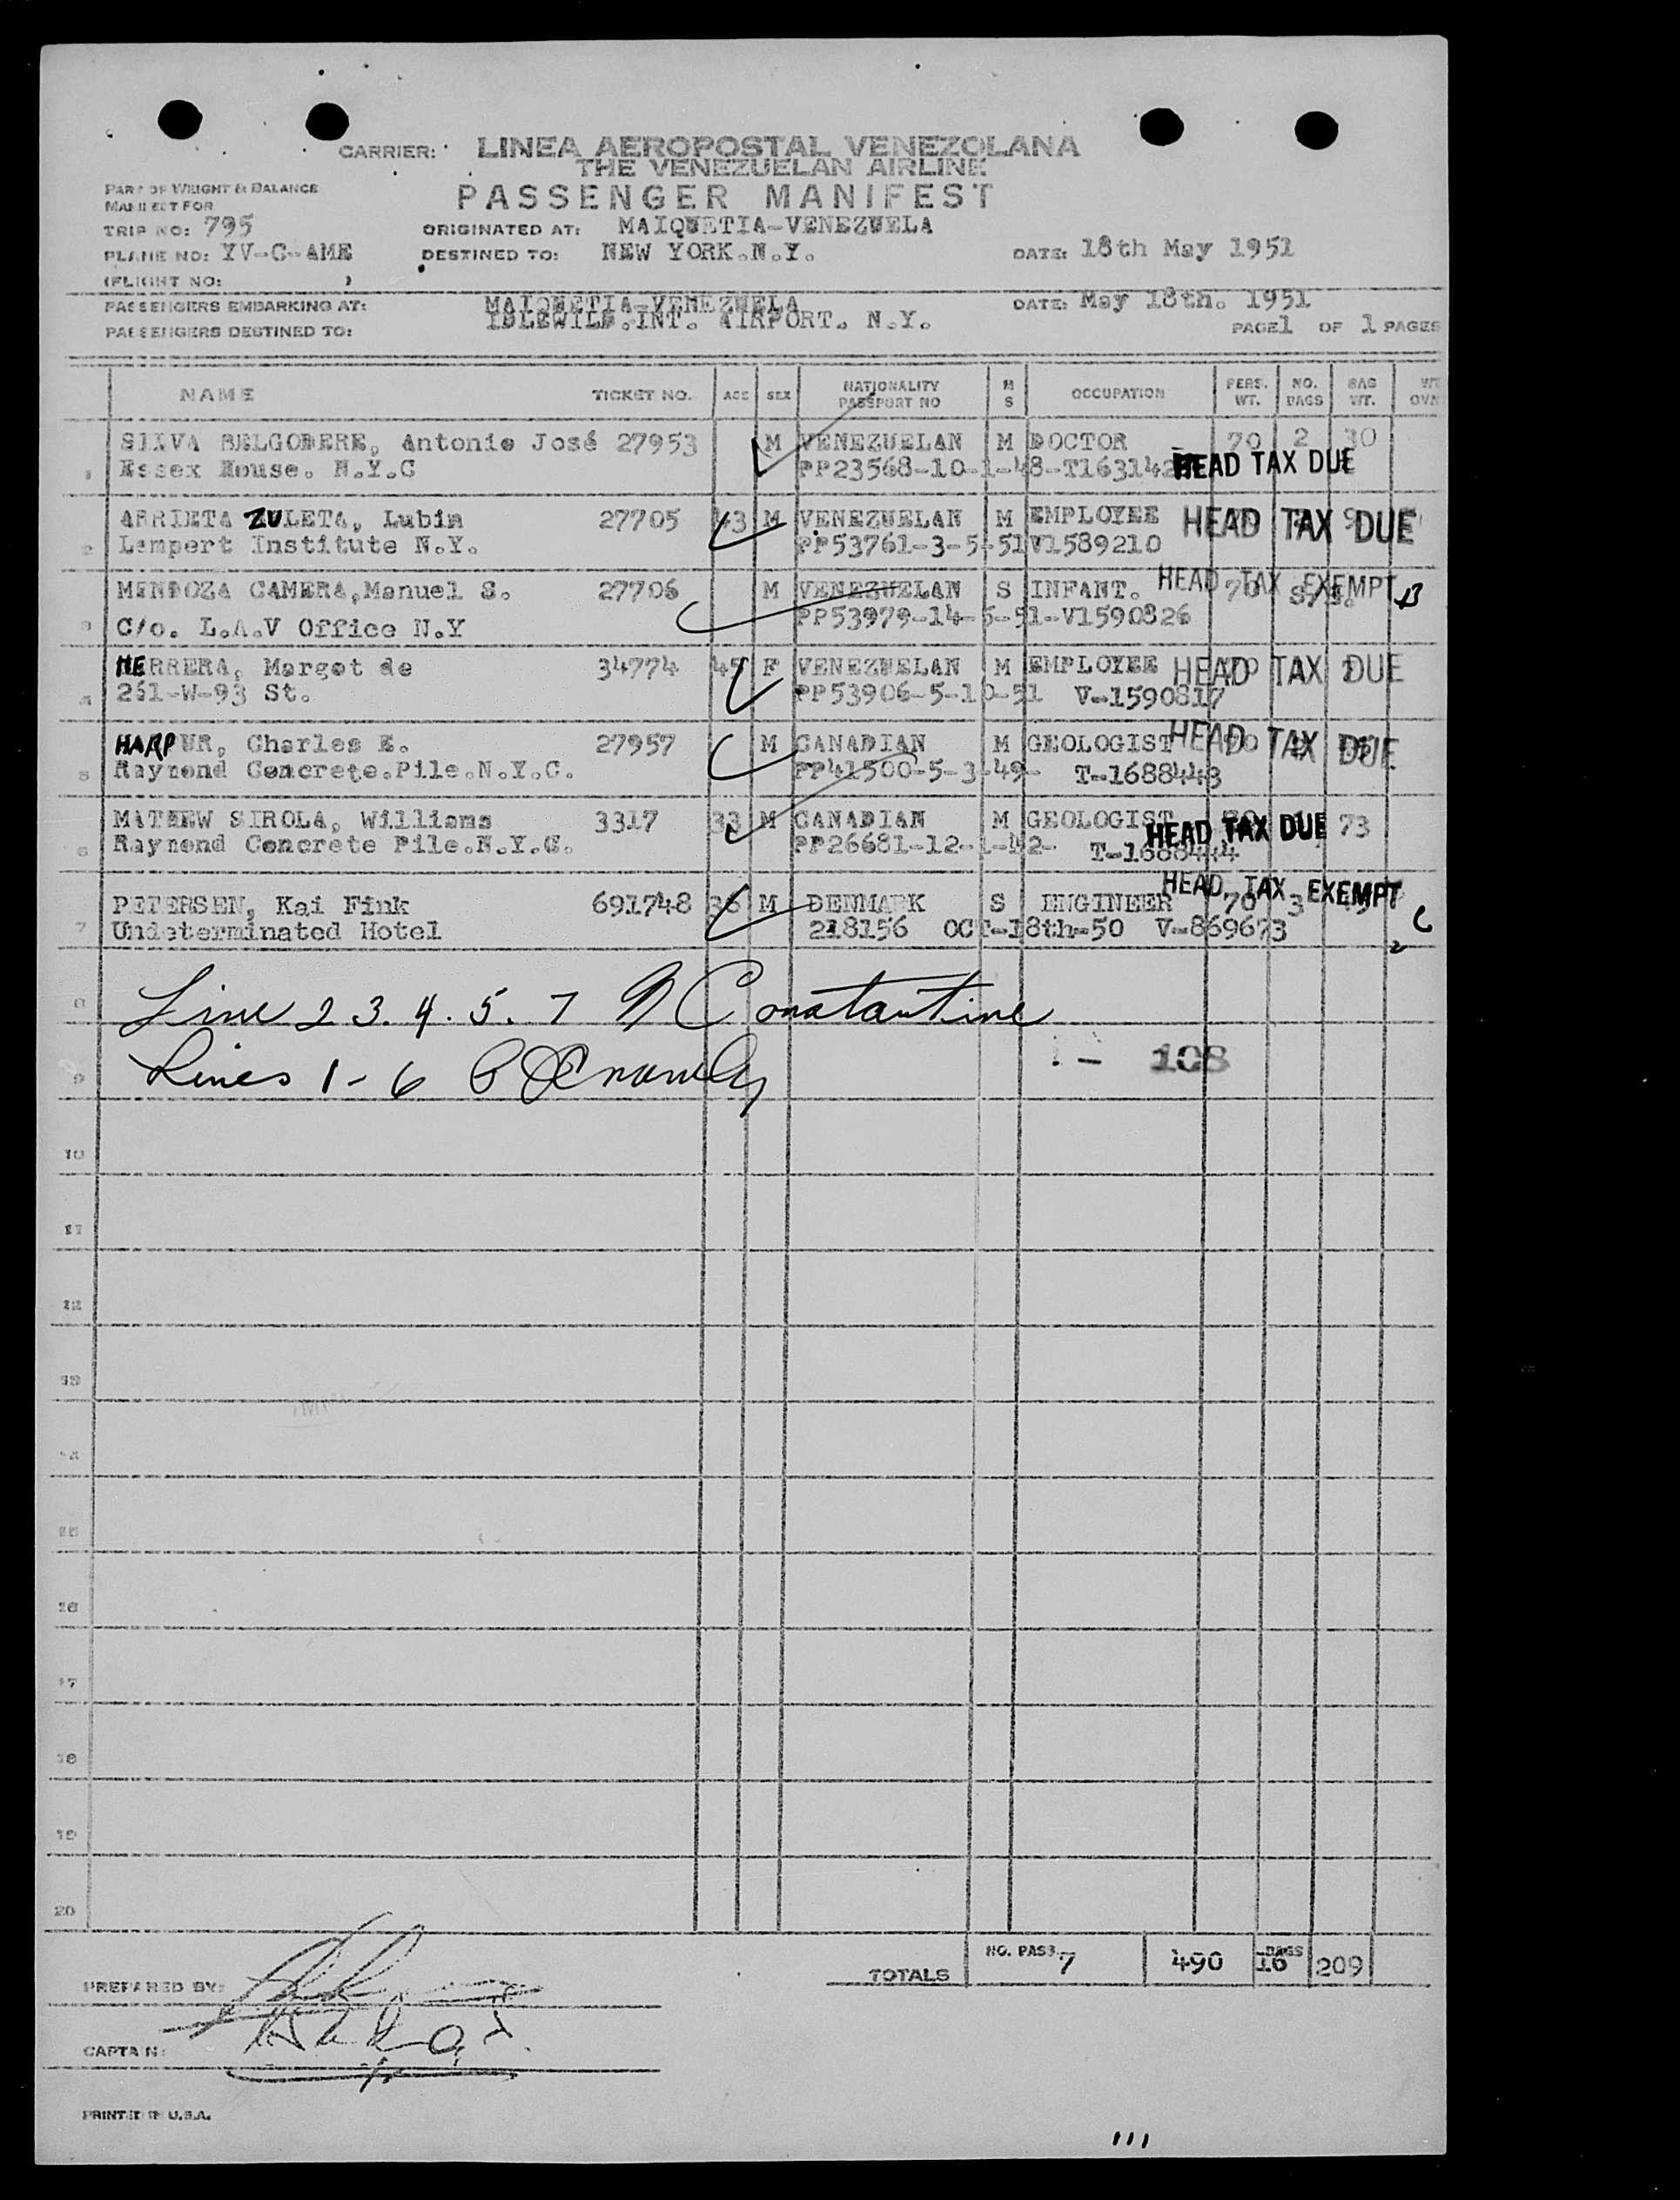 CARRIER: LINEA AEROPOSTAL VENEZOLANA
THE VENEZUELAN AIRLINE
PASSENGER MANIFEST
PART OF WEIGHT & BALANCE
MANIFEST FOR
TRIP NO: 795 ORIGINATED AT: MAIQUETIA-VENEZUELA
PLANE NO: YV-C-AME DESTINED TO: NEW YORK.N.Y. DATE: 18th May 1951
(FLIGHT NO: )
PASSENGERS EMBARKING AT: MAIQUETIA-VENEZUELA DATE: May 18th. 1951
PASSENGERS DESTINED TO: IDLEWILD.INT. AIRPORT. N.Y. PAGE 1 OF 1 PAGES
NAME TICKET NO. AGE SEX NATIONALITY PASSPORT NO M S OCCUPATION PERS. WT. NO. BAGS BAG WT. WT OVN
1 SILVA BELGODERE, Antonio José 27953 M VENEZUELAN M DOCTOR 70 2 30
Essex House. N.Y.C PP23568-10-1-48-T163142 HEAD TAX DUE
2 ARRIETA ZULETA, Lubin 27705 43 M VENEZUELAN M EMPLOYEE HEAD TAX DUE
Lempert Institute N.Y. PP53761-3-5-51V1589210
MENDOZA CAMERA,Manuel S. 27706 M VENEZUELAN S INFANT. 70 HEAD TAX EXEMPT
3 C/o. L.A.V Office N.Y PP53979-14-5-51-V1590826
HERRERA, Margot de 34774 45 F VENEZUELAN M EMPLOYEE HEAD TAX DUE
4 261-W-93 St. PP53906-5-10-51 V-1590817
HARPUR, Charles E. 27957 M CANADIAN M GEOLOGIST HEAD TAX DUE
5 Raymond Concrete.Pile.N.Y.C. PP41500-5-3-49- T-1688443
MATHEW SIROLA, Williams 3317 33 M CANADIAN M GEOLOGIST HEAD TAX DUE 73
6 Raymond Concrete Pile.N.Y.C. PP26681-12-1-42- T-1688444
PETERSEN, Kai Fink 691748 36 M DENMARK S ENGINEER 70 3 HEAD TAX EXEMPT
7 Undeterminated Hotel 218156 OCT-18th-50 V-869673 C
2
8 Line 2 3. 4. 5. 7 Constantine
9 Lines 1-6 - 108
10
11
12
13
14
15
16
17
18
19
20
TOTALS NO. PASS. 7 490 BAGS 16 209
PREPARED BY:
CAPTAIN:
PRINTED IN U.S.A.
111